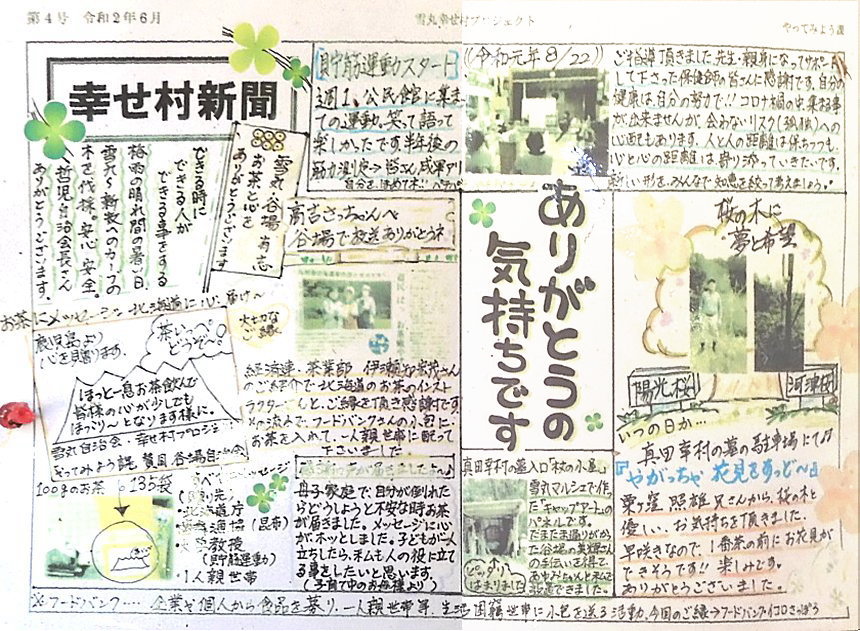 第4号 令和2年6月
雪丸幸せ村プロジェクト
やってみよう課
幸せ村新聞
できる時に
できる人が
できる事をする
梅雨の晴れ間の暑い日、
雪丸〜新牧へのカーブの
木を伐採。安心安全。
哲児自治会長さん
ありがとうございます。
雪丸・谷場有志
お茶と心を
ありがとうございます
貯筋運動スタート
(令和元年8/22)
週1、公民館に集まっ
ての運動。笑って語って
楽しかったです。半年後の
筋力測定→皆さん成果アリ
自分をほめて下さい
ご指導頂きました先生・親身になってサポート
して下さった保健師の皆さんに感謝です。自分の
健康は、自分の努力で!!コロナ禍の中、集まる事
が出来ませんが、会わないリスク(孤独)への
心配でもあります。人と人の距離は保ちつつも
心と心の距離は寄り添っていきたいです。
新しい形をみんなで知恵を絞って考えましょう。
高吉さっちゃんへ
谷場で放送ありがとうネ
ありがとうの
気持ちです
桜の木に
夢と希望
陽光桜
河津桜
いつの日か…
真田幸村の墓の駐車場にて♪
『やがっちゃ 花見をすっど〜』
栗ヶ窪 照雄兄さんから、桜の木と
優しい、お気持ちを頂きました。
早咲きなので、1番茶の前にお花見が
できそうです!!楽しみです。
ありがとうございました。
お茶にメッセージ 北海道に心届け〜
鹿児島より
心を贈ります。
茶いっぺ
どうぞ〜。
ほっと一息お茶飲んで
皆様の心が少しでも
ほっこり〜となります様に。
雪丸自治会・幸せ村プロジェクト
やってみよう課 賛同 谷場自治会
大切な
ご縁
経済連・茶業部 伊瀬知宏茂さん
のご紹介で・北海道のお茶のインスト
ラクターさんと、ご縁を頂き感謝です。
その流れで、フードバンクさんの小包に
お茶を入れて、一人親世帯に配って
下さいました
100gのお茶 135袋
メッセージ
・北海道庁
(貯筋運動)
・1人親世帯
母子家庭で、自分が倒れた
らどうしようと不安な時お茶
が届きました。メッセージに心
が、ホッとしました。子どもが一人
立ちしたら、私も人の役に立て
る事をしたいと思います。
(子育て中のお母様より)
真田幸村の墓入口「杖の小屋」
雪丸マルシェで作っ
た「ギャップアート」の
パネルです。
たまたま通りがかっ
た谷場の美輝さん
の手伝いを得て、
はまりました
※フードバンク…企業や個人から食品を募り、一人親世帯等 生活困窮世帯に小包を送る活動。今回のご縁→フードバンク・イコロさっぽろ